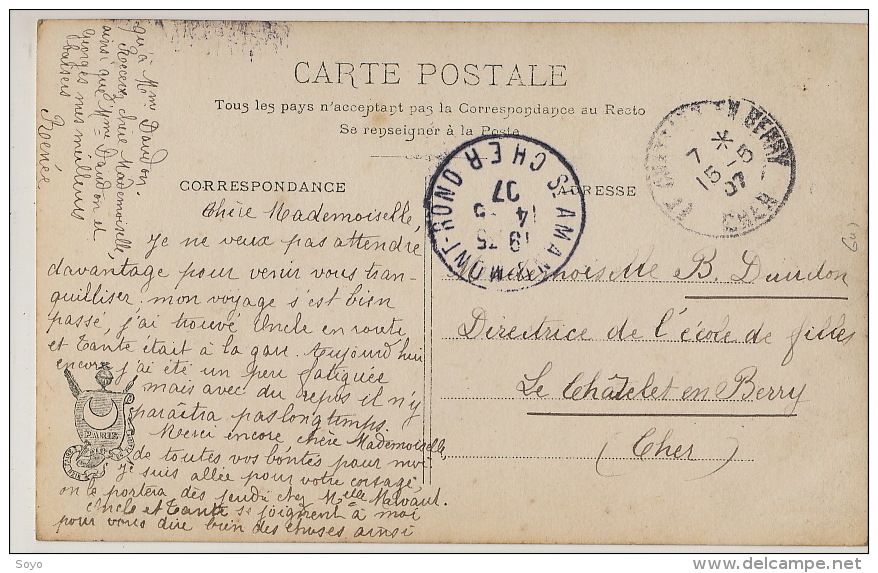 CARTE POSTALE
Tous les pays n'acceptant pas la Correspondance au Recto
Se renseigner à la Poste
CORRESPONDANCE
ADRESSE
Chère Mademoiselle,
Je ne veux pas attendre
davantage pour venir vous tran-
quilliser. mon voyage s'est bien
passé, j'ai trouvé Oncle en route
et Tante était à la gare. Aujourd'hui
encore j'ai été un peu fatiguée
mais avec du repos il n'y
paraîtra pas longtemps.
Merci encore chère Mademoiselle,
de toutes vos bontés pour moi
je suis allée pour votre corsage,
on le portera dès jeudi chez Melle Malvaut.
Oncle et Tante se joignent à moi
pour vous dire bien des choses ainsi
qu'à Mme Daudon.
Recevez chère Mademoiselle,
ainsi que Mme Daudon et
Georges mes meilleurs
baisers
Renée
Mademoiselle B. Daudon
Directrice de l'école de filles
Le Châtelet en Berry
(Cher)
ST AMAND-MONT-ROND CHER
14 -5
07
EN BERRY
CHER
7
15 -5
07
PARIS
Soyo
delcampe.net